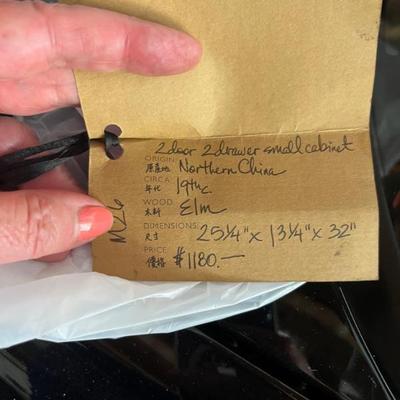 2 door 2 drawer small cabinet
ORIGIN: Northern China
原產地
CIRCA: 19th c
年代
WOOD: Elm
木料
DIMENSIONS: 25 1/4" x 13 1/4" x 32"
尺寸
PRICE: $1180.—
優格
M26